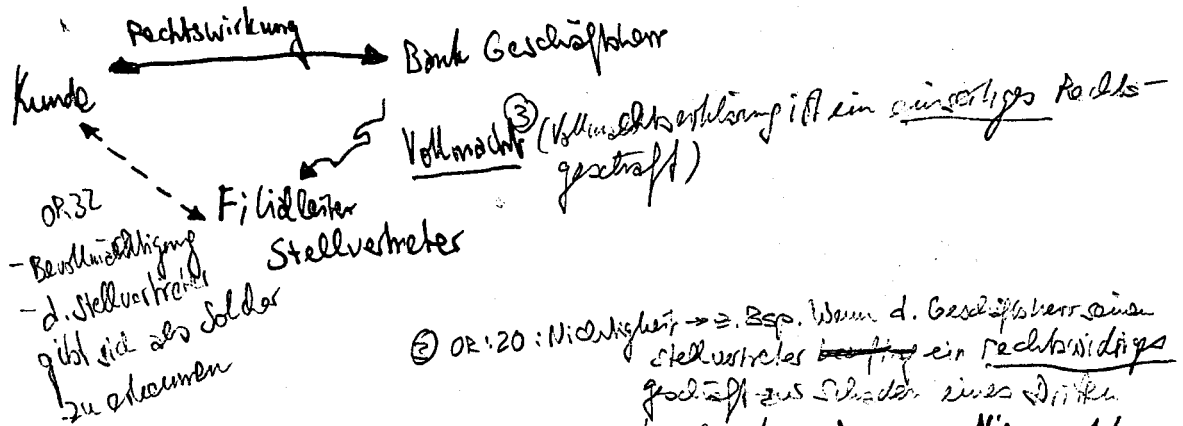 Rechtswirkung
Kunde
Bank Geschäftsherr
Vollmacht ③ (Vollmachtserklärung ist ein einseitiges Rechts-
geschäft)
Filialleiter
Stellvertreter
OR.32
- Bevollmächtigung
- d. Stellvertreter
gibt sich als solcher
zu erkennen
② OR.20: Nichtigkeit → z. Bsp. Wenn d. Geschäftsherr seinen
Stellvertreter ein rechtswidriges
geschäft zus Schaden eines Dritten